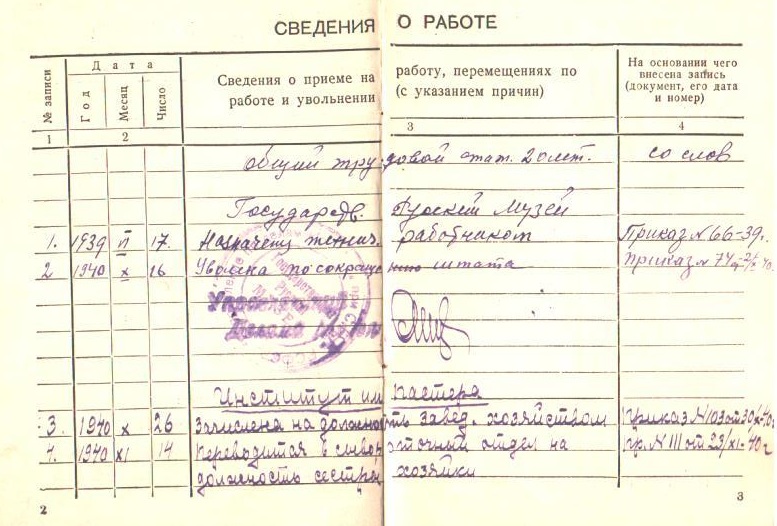 СВЕДЕНИЯ О РАБОТЕ
№ записи
Дата
Год
Месяц
Число
Сведения о приеме на работу, перемещениях по
работе и увольнении (с указанием причин)
На основании чего
внесена запись
(документ, его дата
и номер)
1 2 3 4
Общий трудовой стаж. 20 лет. со слов
Государств. Русский Музей
1. 1939 17. Назначена технич. работником Приказ № 66-39.
2 1940 X 16 Уволена по сокращению штата Приказ № 74
Управляющий
Делами
Институт им Пастера
3. 1940 X 26 Зачислена на должность завед. хозяйством Приказ № 103 от 30/X-40г
4. 1940 XI 14 Переводится в сывороточный отдел на пр. № 111 от 23/XI-40 г
должность сестры хозяйки
2 3